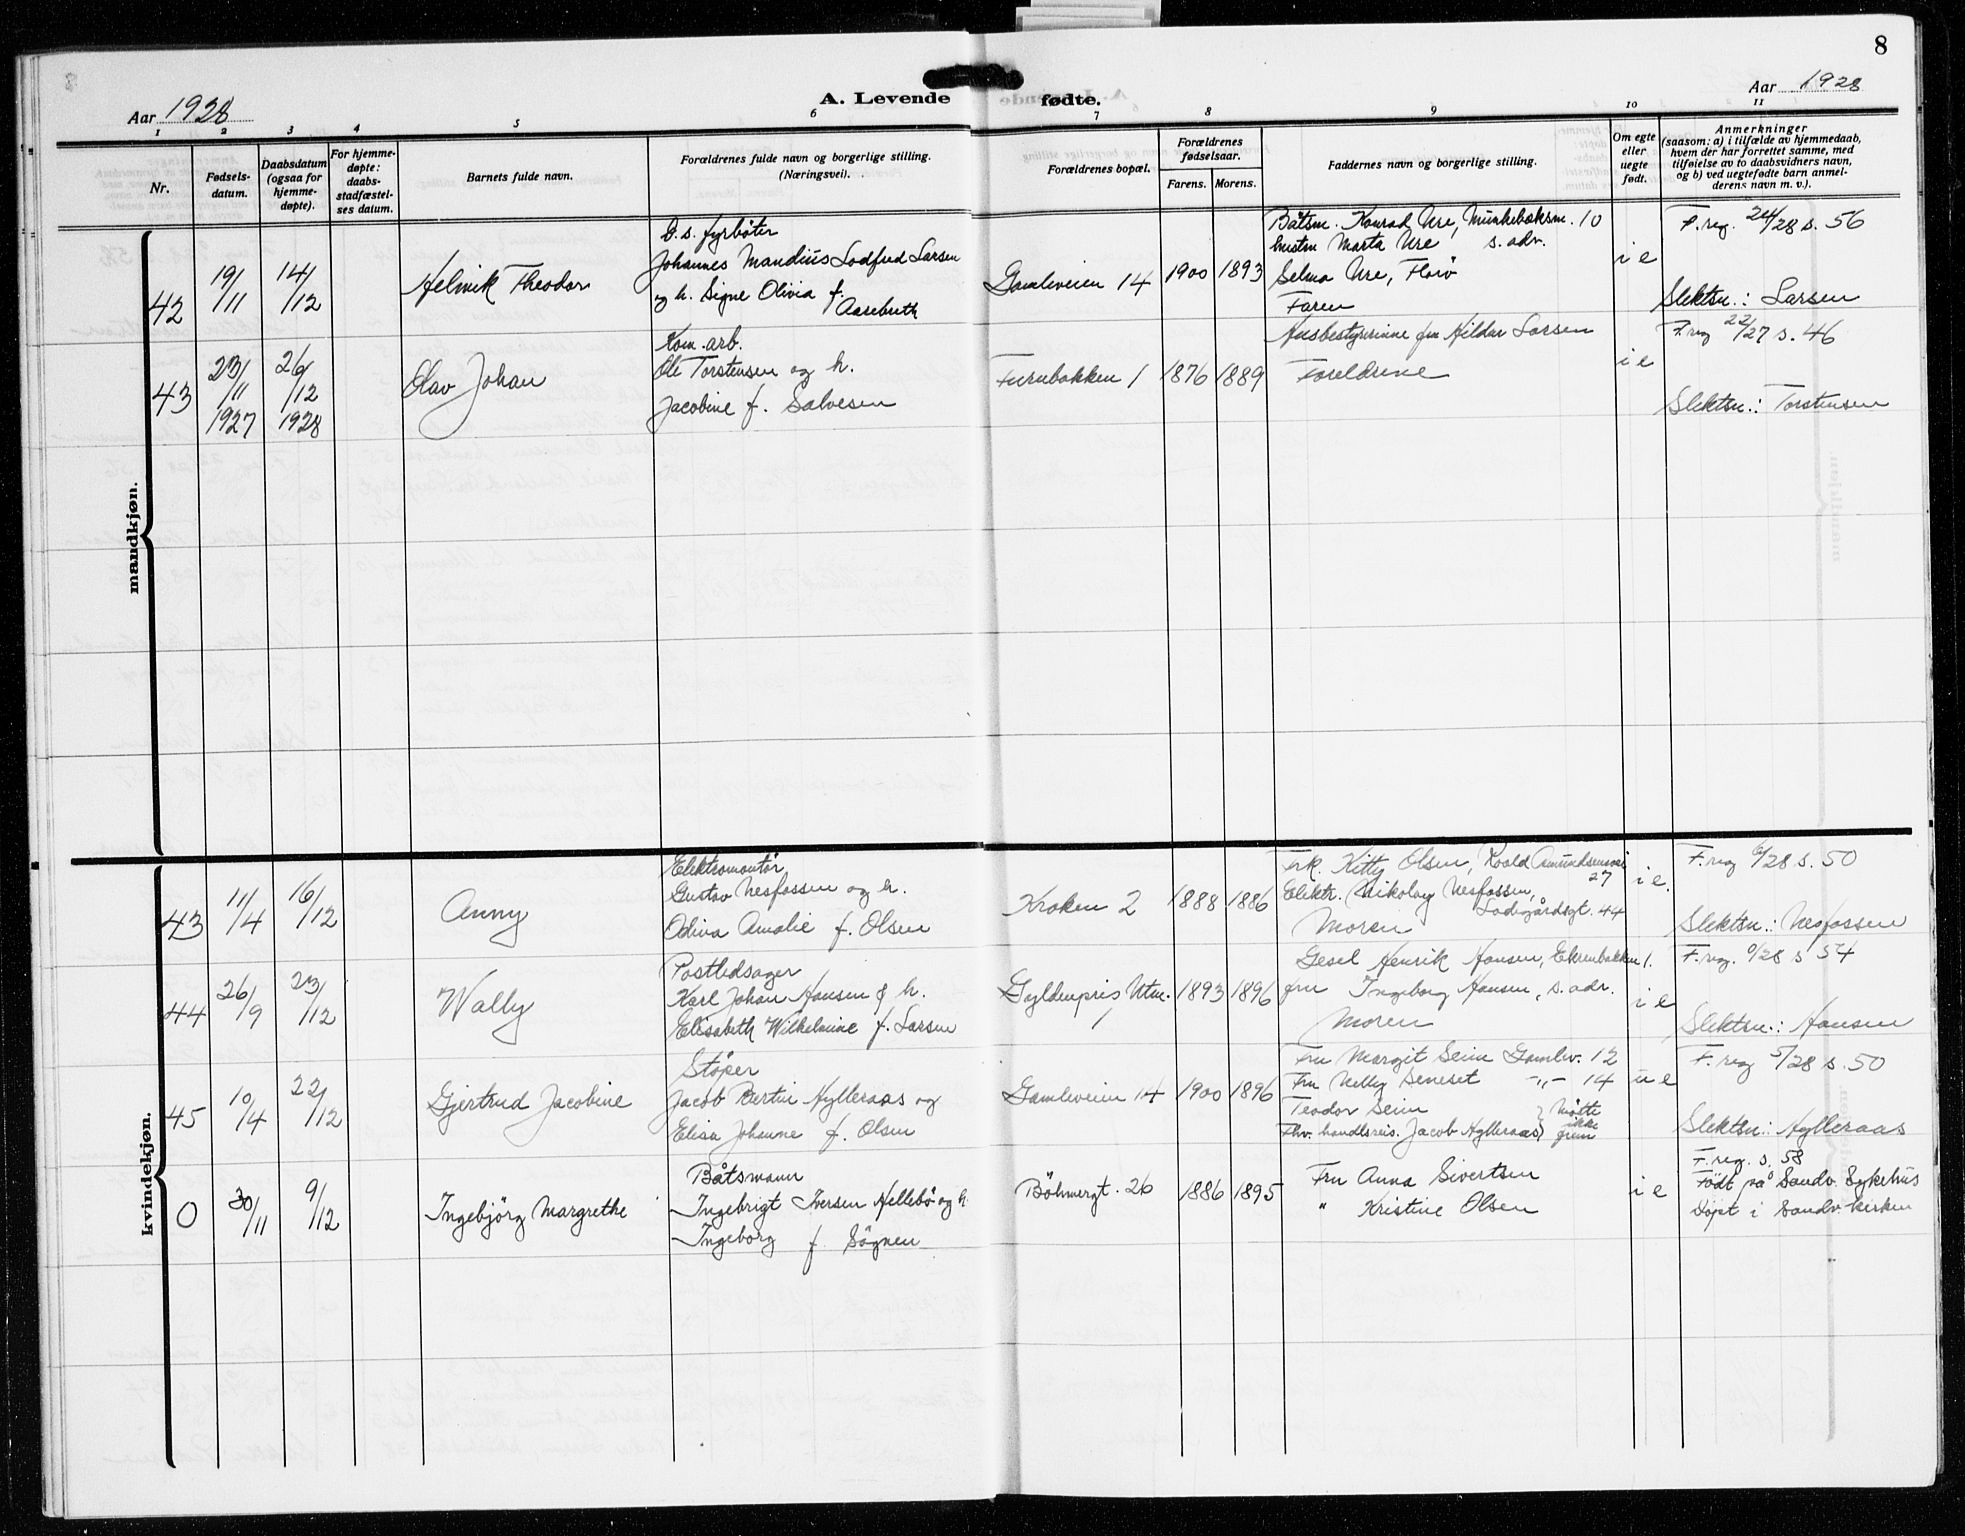 8
Aar 1928
A. Levende fødte.
Aar 1928
1 2 3 4 5 6 7 8 9 10 11
Nr.
Fødsels-
datum.
Daabsdatum
(ogsaa for
hjemme-
døpte).
For hjemme-
døpte:
daabs-
stadfæstel-
ses datum.
Barnets fulde navn.
Forældrenes fulde navn og borgerlige stilling.
(Næringsvei).
Forældrenes bopæl.
Forældrenes
fødselsaar.
Farens. Morens.
Faddernes navn og borgerlige stilling.
Om egte
eller
uegte
født.
Anmerkninger
(saasom: a) i tilfælde av hjemmedaab,
hvem der har forrettet samme, med
tilføielse av to daabsvidners navn,
og b) ved uegtefødte barn anmel-
derens navn m. v.).
mandkjøn.
42
19/11
14/12
Helmik Theodor
D.s. fyrbøter
Johannes Mandius Lodfred Larsen
og h. Signe Olivia f.
Aasebreth
Gamleveien 14
1900 1893
Båtsm. Konrad Ure, Munkebeksm. 10
hustru Marta Ure s. adr.
Selma Ure, Florö
Faren
Husbestyrerinne fru Hildur Larsen
i e
F. reg. 24/28 s. 56
Slektsn.: Larsen
43
23/11
1927
26/12
1928
Olav Johan
Kom. arb.
Ole Torstensen og h.
Jacobine f. Salvesen
Furubakken 1
1876 1889
Foreldrene
i e
F. reg 22/27 s. 46
Slektsn.: Torstensen
kvindekjøn.
43
11/4
16/12
Anny
Elektromontör
Gustav Nesfossen og h.
Odiva Amalie f. Olsen
Kroken 2
1888 1886
Frk. Kitty Olsen, Roald Amundsensvei
27
Elektr. Nikolay Nesfossen,
Ladegårdsgt. 44
Moren
i e.
F. reg 6/28 s. 50
Slektsn.: Nesfossen
44
26/9
23/12
Wally
Postledsager
Karl Johan Hansen & h.
Elisabeth Wilhelmine f. Larsen
Gyldenpris Utm.
1
1893 1896
Gesel Henrik Hansen, Ekrenbakken 1.
fru Ingeborg Hansen, s. adr.
Moren
i e
F. reg. 0/28 s 54
Slektsn.: Hansen
45
10/4
22/12
Gjertrud Jacobine
Støper
Jacob Bertin Hylleraas og
Elisa Johanne f. Olsen
Gamleveien 14
1900 1896
Fru Margit Seim Gamlev. 12
Fru Nelly Seneset -„- 14
Teodor Seim
Fhv. handlsreis. Jacob Hylleraas
} Møtte
ikke
frem
u e
F. reg 5/28 s. 50
Slektsn.: Hylleraas
0
30/11
9/12
Ingebjörg Margrethe
Båtsmann
Ingebrigt Iversen Hellebö og h.
Ingeborg f. Sögnen
Böhmergt. 26
1886 1895
Fru Anna Sivertsen
" Kristine Olsen
i e
F. reg. s. 58
Födt på Sandv. Sykehus
Döpt i Sandv. kirken